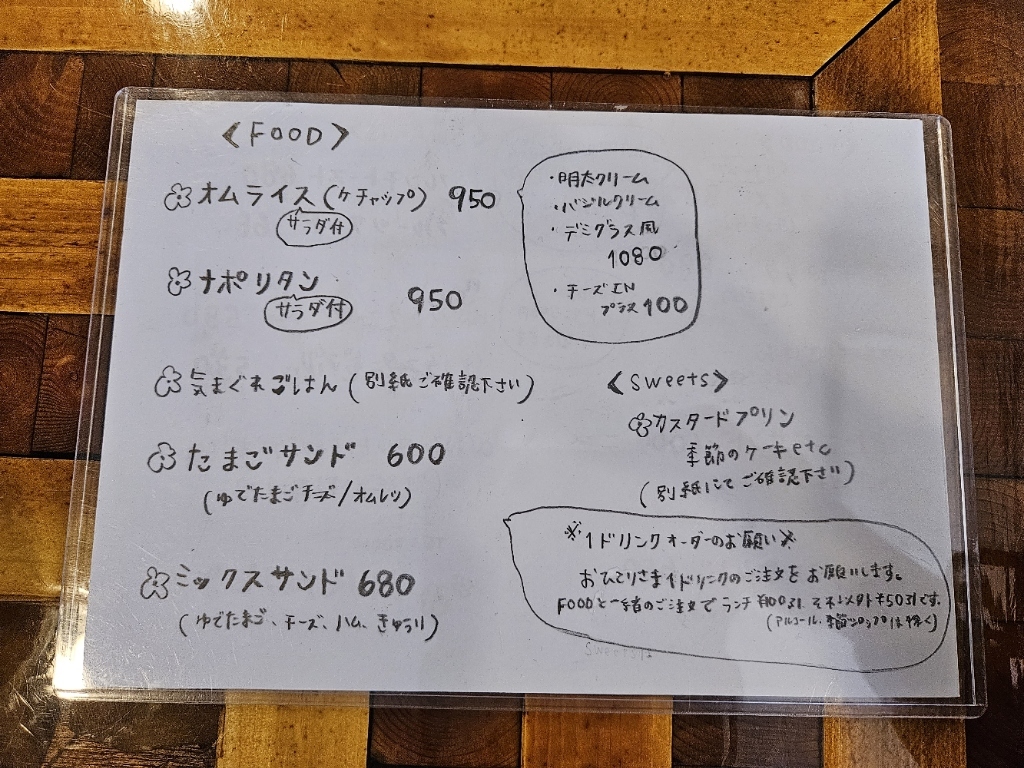 〈FOOD〉
オムライス(ケチャップ) 950
サラダ付
・明太クリーム
・バジルクリーム
・デミグラス風
1080
・チーズIN
プラス100
ナポリタン 950
サラダ付
気まぐれごはん(別紙ご確認下さい)
たまごサンド 600
(ゆでたまごチーズ/オムレツ)
ミックスサンド 680
(ゆでたまご、チーズ、ハム、きゅうり)
〈sweets〉
カスタードプリン
季節のケーキetc
(別紙にてご確認下さい)
※1ドリンクオーダーのお願い※
おひとりさま1ドリンクのご注文をお願いします。
FOODと一緒のご注文でランチ¥100引、それ以外¥50引です。
(アルコール、季節シロップは除く)